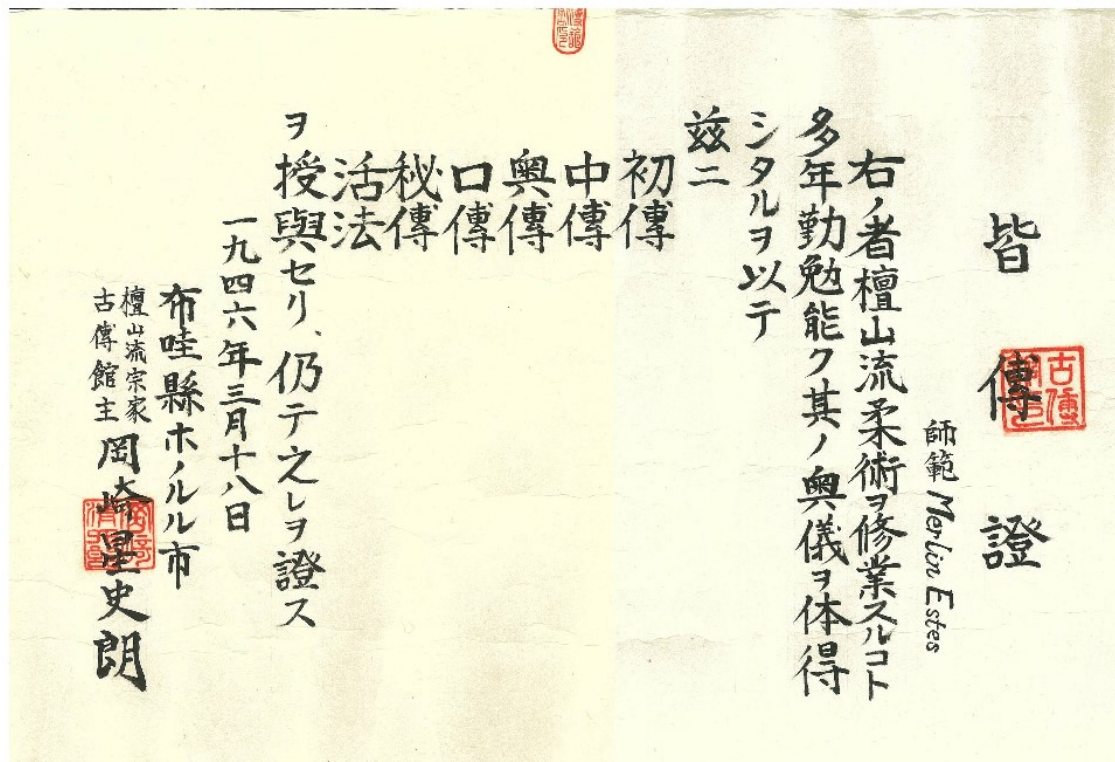 皆傳證
師範 Merlin Estes
右ノ者檀山流柔術ヲ修業スルコト
多年勤勉能ク其ノ奥儀ヲ体得
シタルヲ以テ
茲ニ
初傳
中傳
奥傳
口傳
秘傳
活法
ヲ授與セリ、仍テ之レヲ證ス
一九四六年三月十八日
布哇縣ホノルル市
檀山流宗家
古傳館主
岡崎星史朗